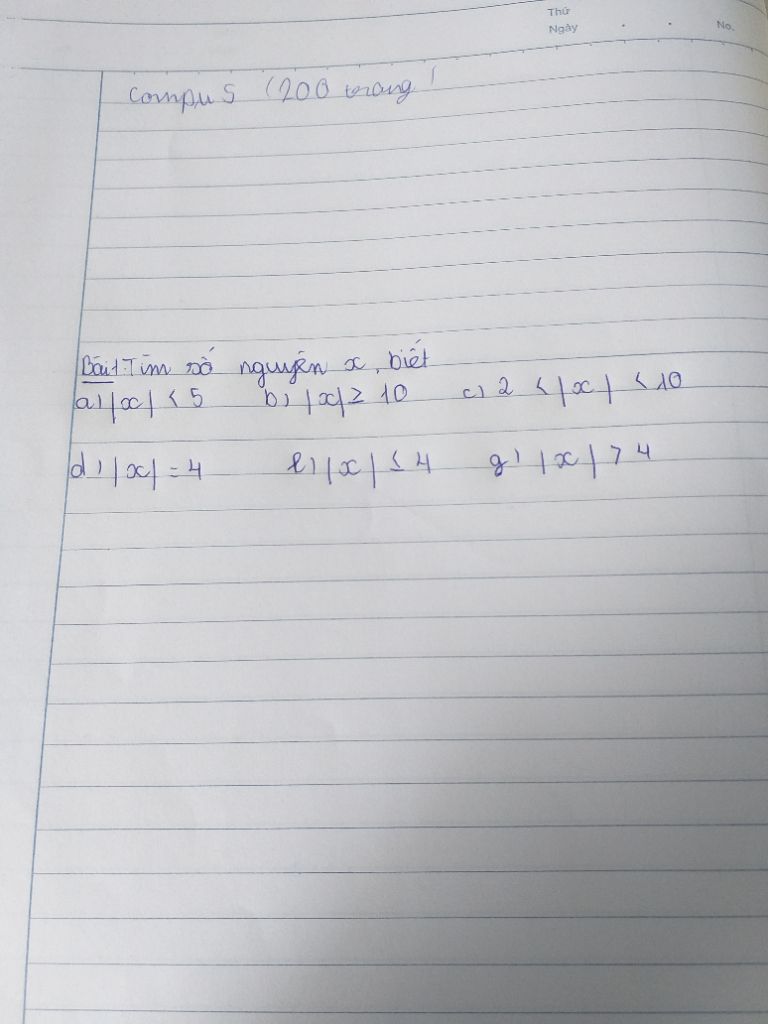 Thứ
Ngày . . No.
Compus (200 trang)
Bài 1: Tìm số nguyên x, biết
a) |x| < 5 b) |x| ≥ 10 c) 2 < |x| < 10
d) |x| = 4 e) |x| ≤ 4 g) |x| > 4